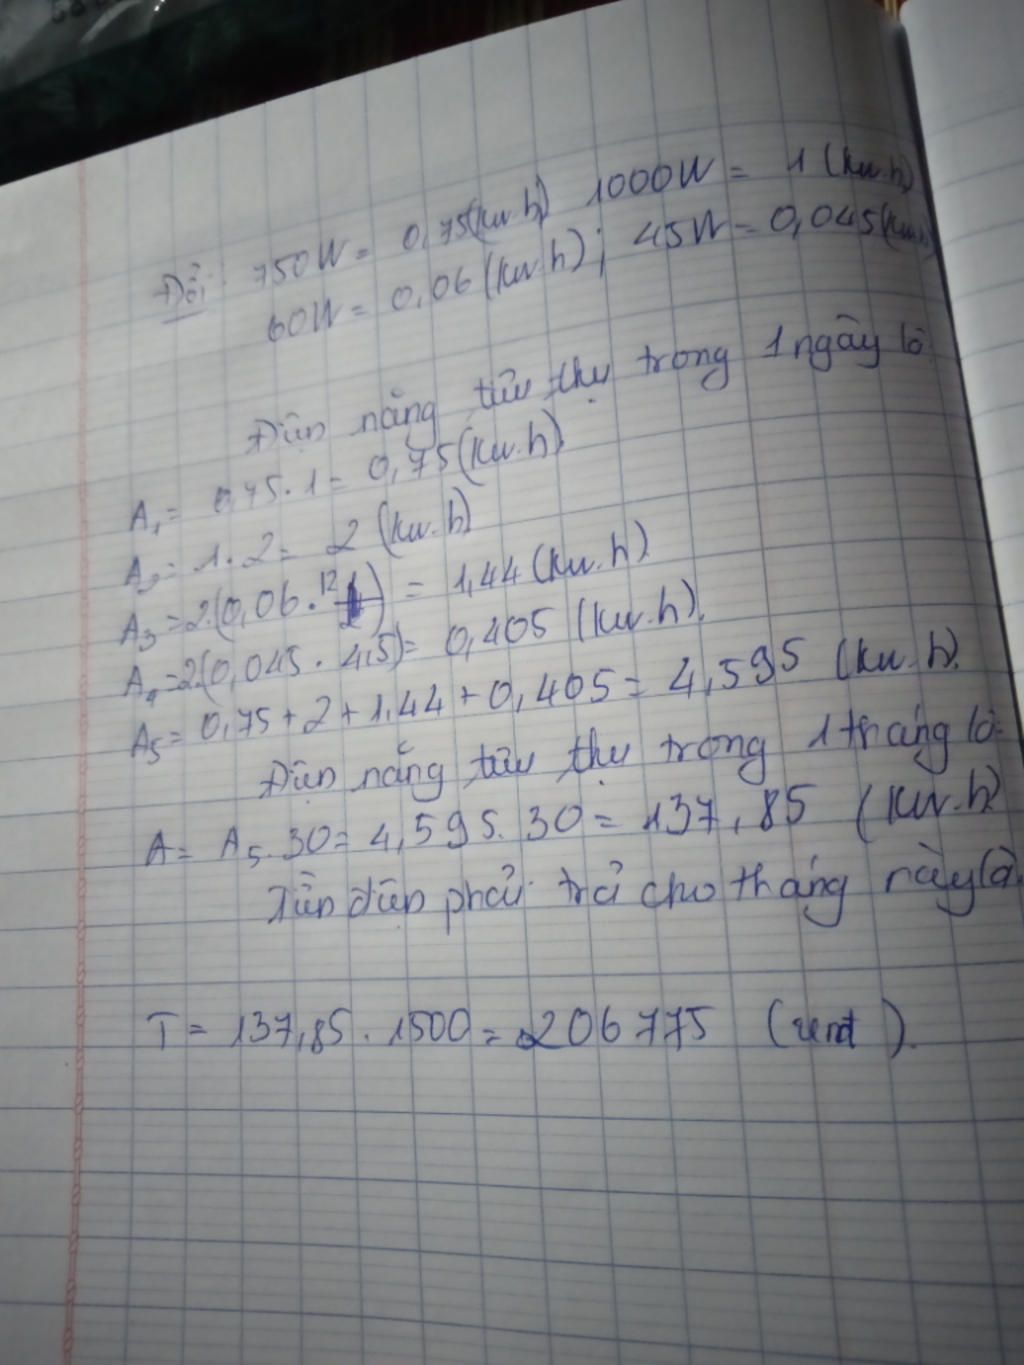 Đổi: 750W = 0,75(Kw.h) 1000W = 1 (Kw.h)
60W = 0,06 (Kw.h); 45W = 0,045(Kw.h)
Điện năng tiêu thụ trong 1 ngày là
A₁ = 0,75.1 = 0,75(Kw.h)
A₂ = 1.2 = 2 (Kw.h)
A₃ = 2.(0,06.12) = 1,44 (Kw.h)
A₄ = 2(0,045.4,5) = 0,405 (Kw.h).
A₅ = 0,75 + 2 + 1,44 + 0,405 = 4,595 (Kw.h).
Điện năng tiêu thụ trong 1 tháng là:
A = A₅.30 = 4,595.30 = 137,85 (Kw.h)
Tiền điện phải trả cho tháng này là
T = 137,85.1500 = 206775 (vnđ).